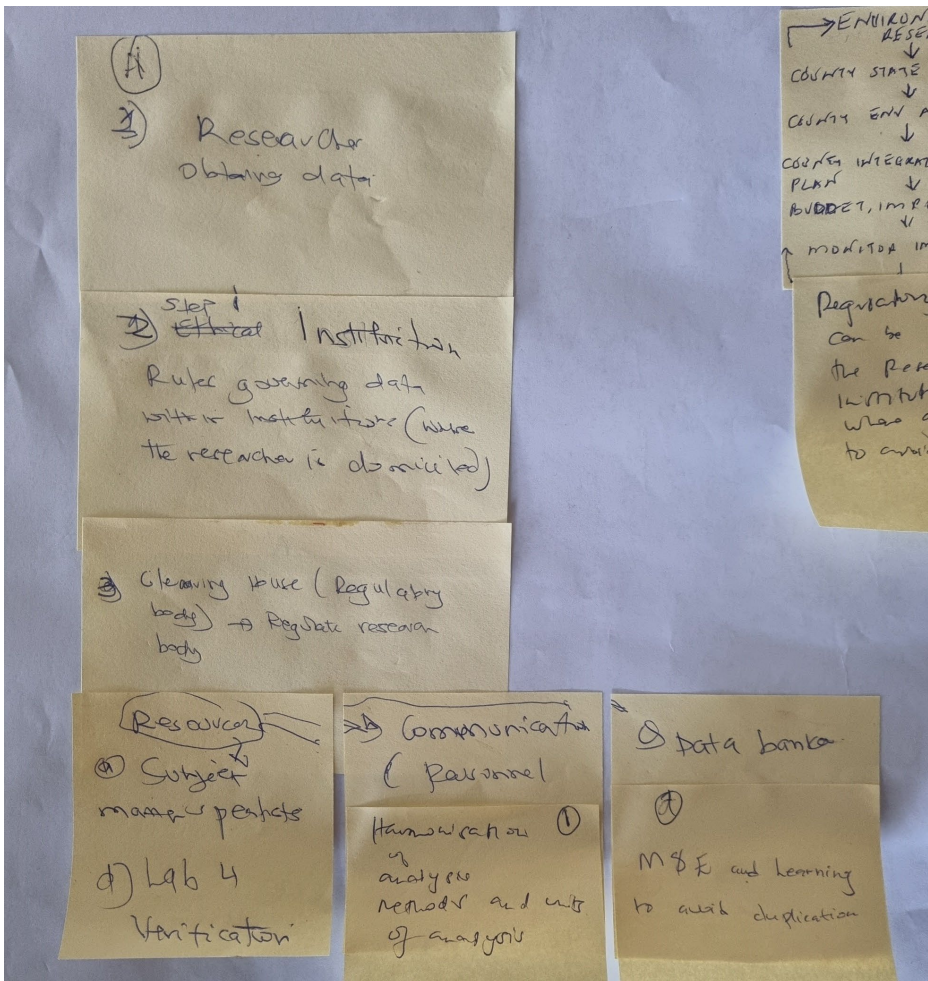 A
1) Researcher
Obtaining data
Step 1
2) Ethical Institution
Rules governing data
within institutions (where
the researcher is domiciled)
3) Clearing House (Regulatory
body) → Regulate research
body
Resources
a) Subject
matter
d) Lab 4
Verification
b) Communication
( Personnel
Harmonisation 1
of
analysis
methods and units
of analysis
Data banks
M&E and Learning
to avoid duplication
→ ENVIRON
RESE
↓
COUNTY STATE
↓
COUNTY ENV A
↓
COUNTY INTEGRAT
PLAN ↓
BUDGET, IMP
↓
MONITOR IM
Regulatory
can be
the Rese
institut
when
to avoi